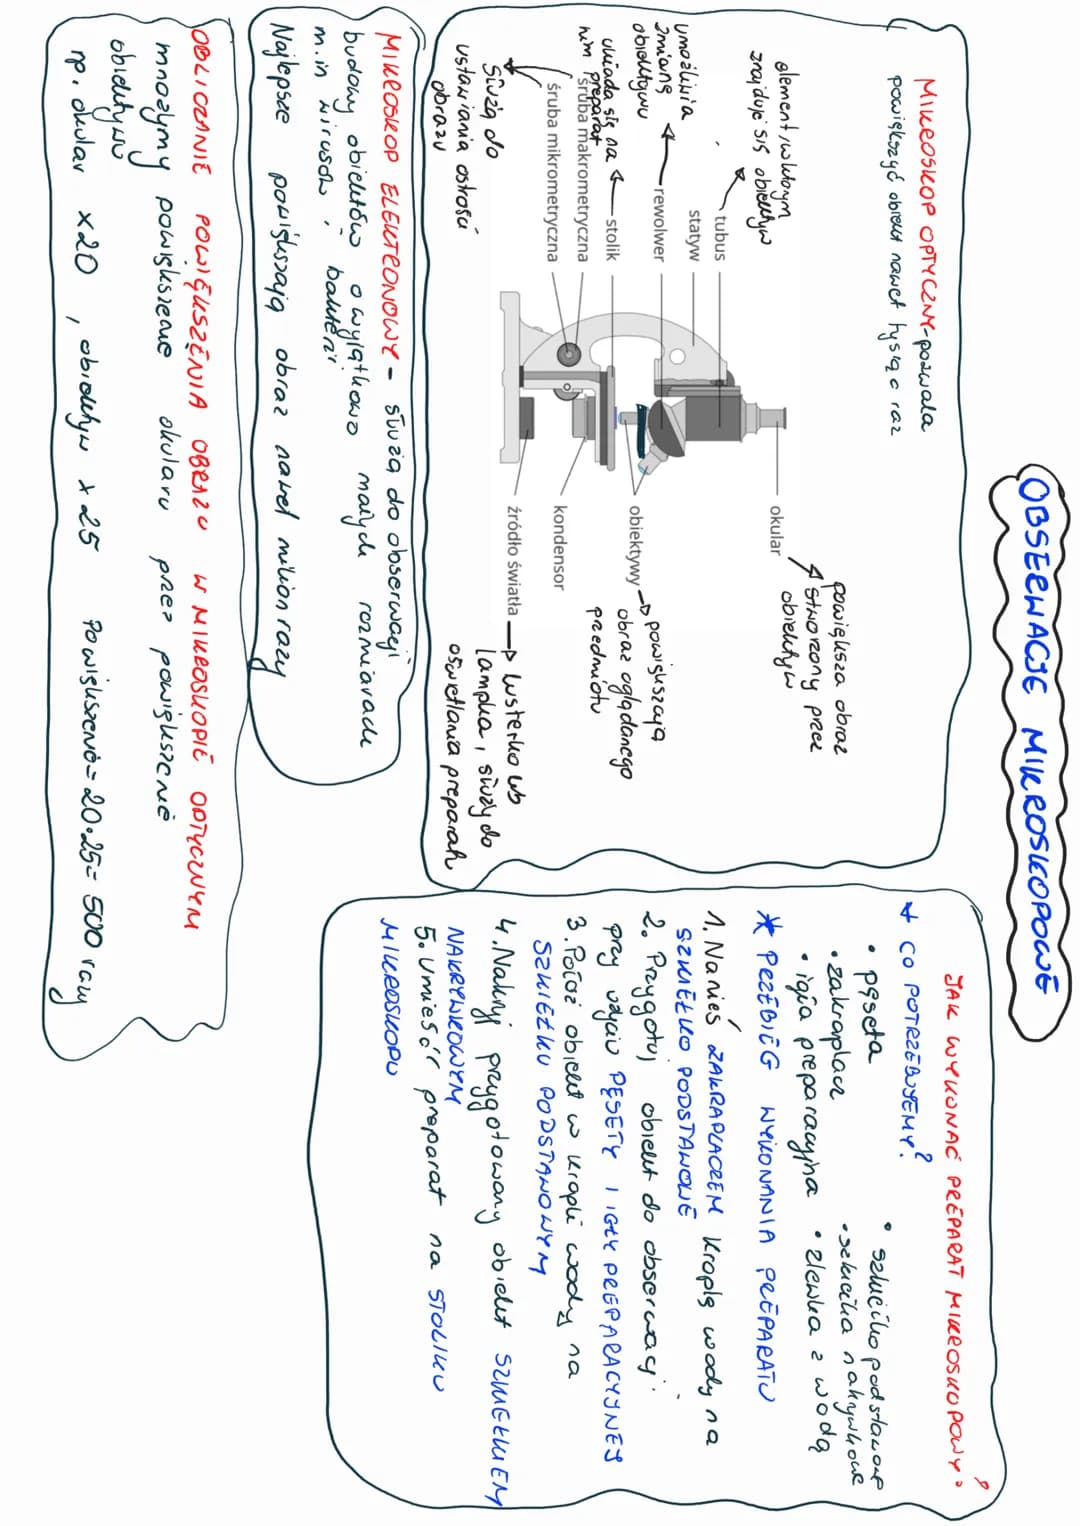 OBSERWACJE MIKROSKOPOWE
MIKROSKOP OPTYCZNY - pozwala
powiększyć obiekt nawet tysiąc raz
element, w którym
znajduje się obiektyw
umożliwia
zmianę
obiektywu
układa się na
nim preparat
Służą do
ustawiania ostrości
obrazu
tubus
statyw
rewolwer
stolik
śruba makrometryczna
śruba mikrometryczna
okular
obiektywy
kondensor
źródło światła
powiększa obraz
stworzony przez
obiektyw
powiększają
obraz oglądanego
przedmiotu
lusterko lub
lampka, służy do
oświetlania preparatu
MIKROSKOP ELEKTRONOWY - służą do obserwacji
budowy obiektów o wyjątkowo małych rozmiarach
m.in wirusów, bakterii
Najlepsze powiększają obraz nawet milion razy
OBLICZANIE POWIĘKSZENIA OBRAZU W MIKROSKOPIE OPTYCZNYM
mnożymy powiększenie okularu przez powiększenie
obiektywu
np. okular x20, obiektyw x25 Powiększenie = 20·25 = 500 razy
JAK WYKONAĆ PREPARAT MIKROSKOPOWY?
* CO POTRZEBUJEMY?
• pęseta
• zakraplacz
• igła preparacyjna
• szkiełko podstawowe
• szkiełka nakrywkowe
• zlewka z wodą
* PRZEBIEG WYKONANIA PREPARATU
1. Nanieś ZAKRAPLACZEM kroplę wody na
SZKIEŁKO PODSTAWOWE
2. Przygotuj obiekt do obserwacji
przy użyciu PĘSETY I IGŁY PREPARACYJNEJ
3. Połóż obiekt w kropli wody na
SZKIEŁKU PODSTAWOWYM
4. Nakryj przygotowany obiekt SZKIEŁKIEM
NAKRYWKOWYM
5. Umieść preparat na STOLIKU
MIKROSKOPU